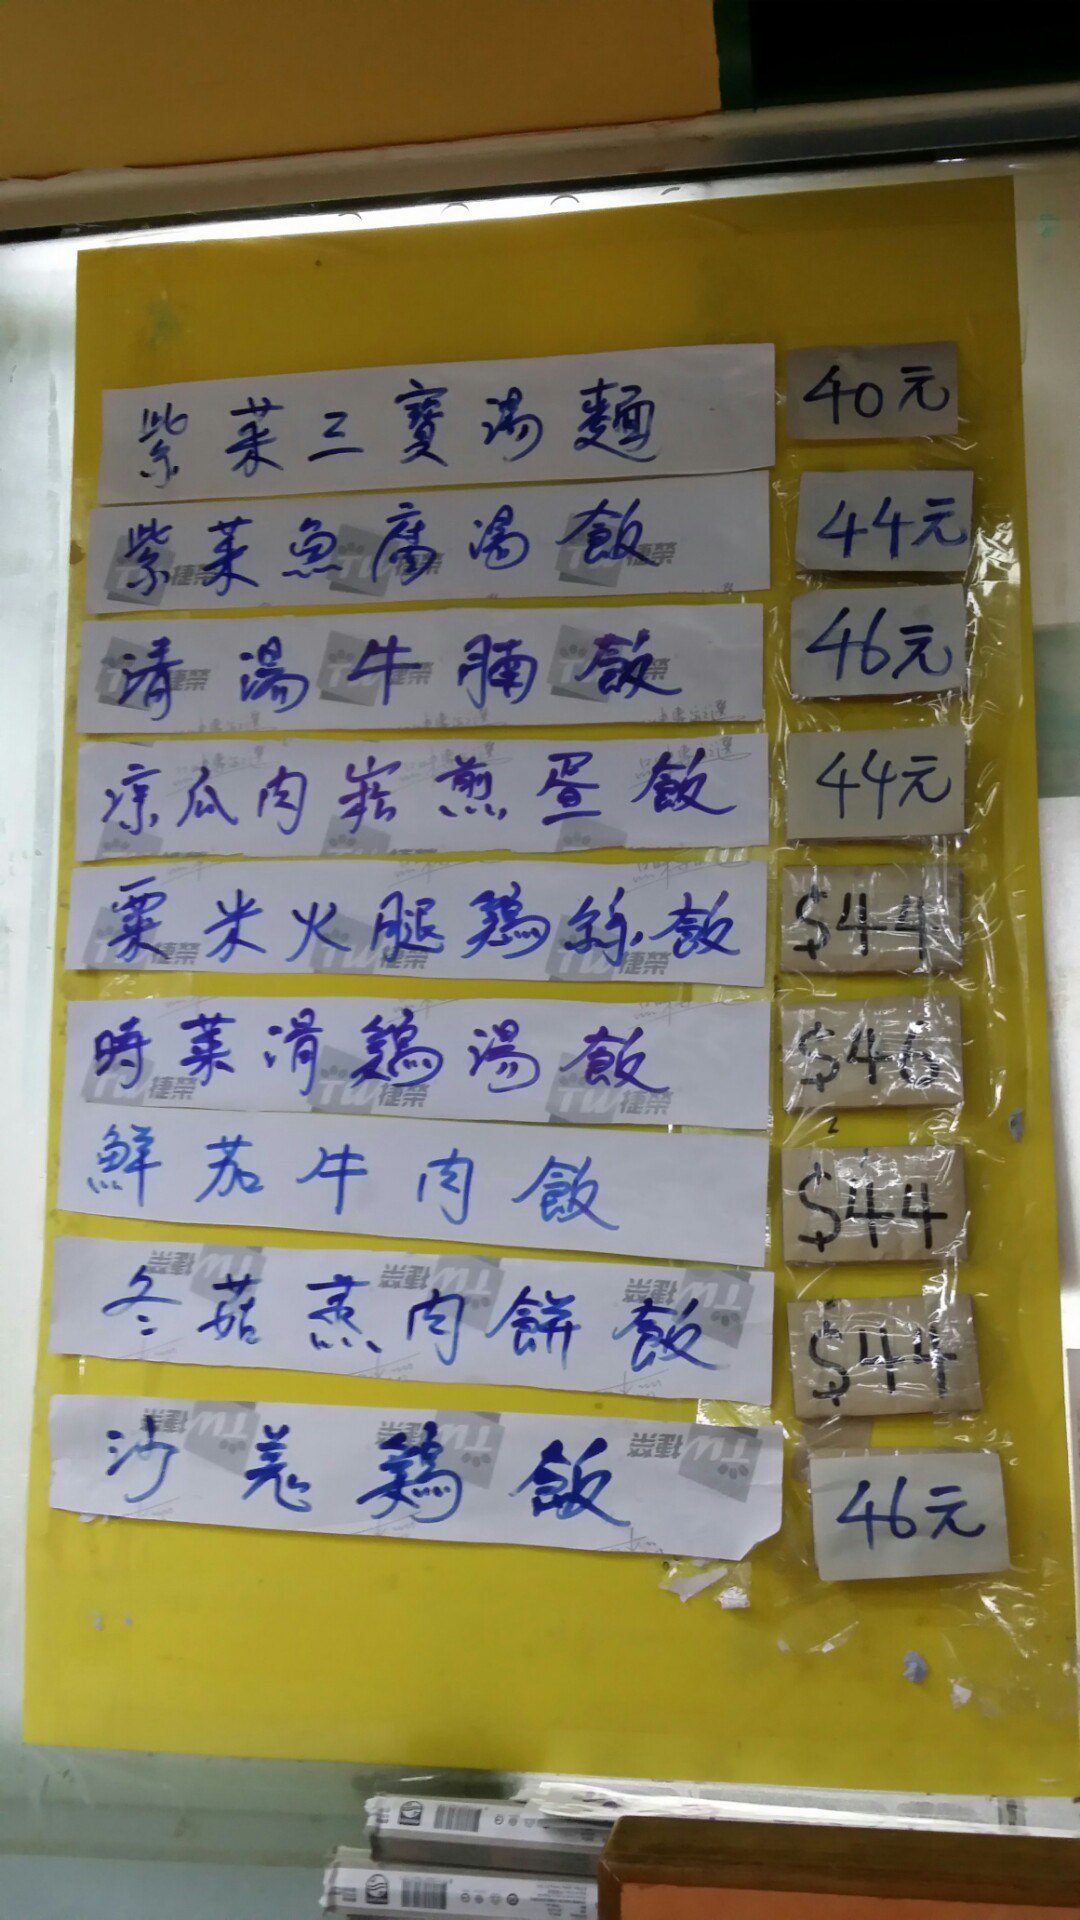 紫菜三寶湯麵 40元
紫菜魚腐湯飯 44元
清湯牛腩飯 46元
凉瓜肉崧煎蛋飯 44元
粟米火腿鷄絲飯 $44
時菜滑鷄湯飯 $46
鮮茄牛肉飯 $44
冬菇蒸肉餅飯 $44
沙羗鷄飯 46元